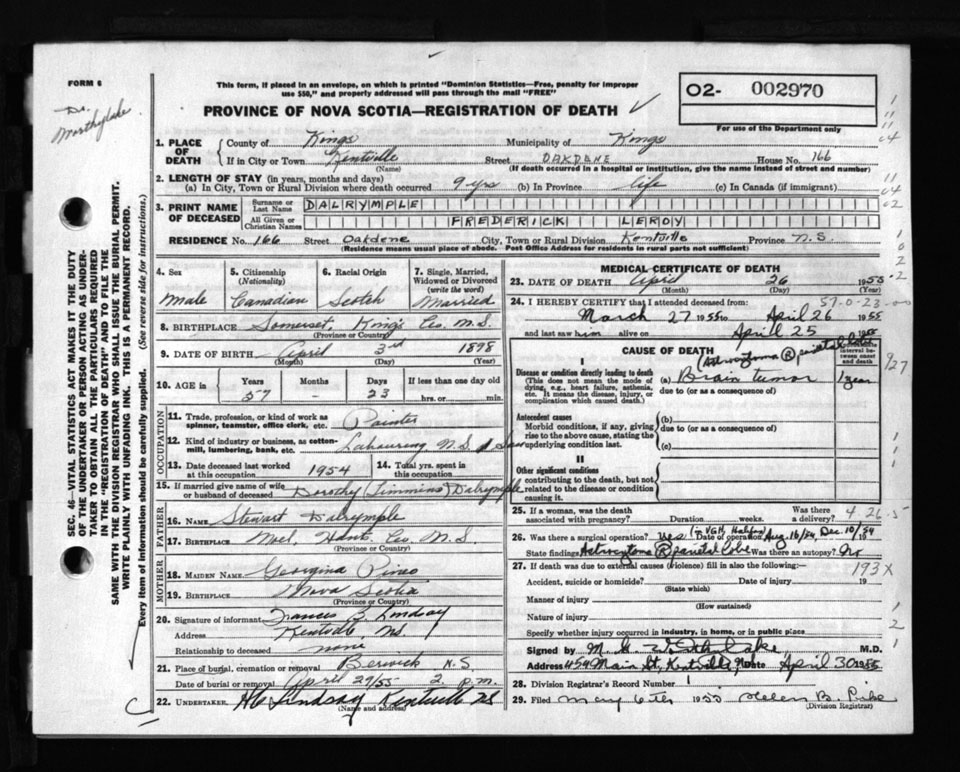 FORM 6
Dr.
This form, if placed in an envelope, on which is printed "Dominion Statistics—Free, penalty for improper
use $50," and properly addressed will pass through the mail "FREE"
PROVINCE OF NOVA SCOTIA—REGISTRATION OF DEATH
O2- 002970
For use of the Department only
SEC. 46—VITAL STATISTICS ACT MAKES IT THE DUTY
OF THE UNDERTAKER OR PERSON ACTING AS UNDER-
TAKER TO OBTAIN ALL THE PARTICULARS REQUIRED
IN THE "REGISTRATION OF DEATH" AND TO FILE THE
SAME WITH THE DIVISION REGISTRAR WHO SHALL ISSUE THE BURIAL PERMIT.
WRITE PLAINLY WITH UNFADING INK. THIS IS A PERMANENT RECORD.
Every item of information should be carefully supplied. (See reverse side for instructions.)
1. PLACE OF DEATH County of Kings Municipality of Kings
If in City or Town Kentville Street OAKDANE House No. 166
(Name) (If death occurred in a hospital or institution, give the name instead of street and number)
2. LENGTH OF STAY (in years, months and days)
(a) In City, Town or Rural Division where death occurred 9 yrs (b) In Province life (c) In Canada (if immigrant)
3. PRINT NAME OF DECEASED Surname or Last Name DALRYMPLE
All Given or Christian Names FREDERICK LEROY
RESIDENCE No. 166 Street Oakdene City, Town or Rural Division Kentville Province N.S.
(Residence means usual place of abode. Post Office Address for residents in rural parts not sufficient)
4. Sex Male
5. Citizenship (Nationality) Canadian
6. Racial Origin Scotch
7. Single, Married, Widowed or Divorced (write the word) Married
8. BIRTHPLACE Somerset, Kings Co. N.S.
(Province or Country)
9. DATE OF BIRTH April 3rd 1898
(Month) (Day) (Year)
10. AGE in Years 57 Months – Days 23 If less than one day old hrs. or min.
OCCUPATION
11. Trade, profession, or kind of work as spinner, teamster, office clerk, etc. Painter
12. Kind of industry or business, as cotton-mill, lumbering, bank, etc. N.S.
13. Date deceased last worked at this occupation 1954
14. Total yrs. spent in this occupation
15. If married give name of wife or husband of deceased Dorothy (Timmins) Dalrymple
FATHER
16. NAME Stewart Dalrymple
17. BIRTHPLACE Noel, Hants Co. N.S.
(Province or Country)
MOTHER
18. MAIDEN NAME Georgina Pineo
19. BIRTHPLACE Nova Scotia
(Province or Country)
20. Signature of informant Frances B. Lindsay
Address Kentville, NS.
Relationship to deceased none
21. Place of burial, cremation or removal Berwick N.S.
Date of burial or removal April 29/55 2 p.m.
22. UNDERTAKER, Lindsay Kentville NS
(Name and address)
MEDICAL CERTIFICATE OF DEATH
23. DATE OF DEATH April 26 1955
(Month) (Day) (Year)
24. I HEREBY CERTIFY that I attended deceased from: 57-0-23
March 27 1955 to April 26 1955
and last saw him alive on April 25 1955
CAUSE OF DEATH
Interval between onset and death
I
Disease or condition directly leading to death (Astrocytoma R parietal lobe)
(This does not mean the mode of dying, e.g., heart failure, asthenia, etc. It means the disease, injury, or complication which caused death.)
(a) Brain tumor 1 year
due to (or as a consequence of)
Antecedent causes
Morbid conditions, if any, giving rise to the above cause, stating the underlying condition last.
(b)
due to (or as a consequence of)
(c)
II
Other significant conditions
contributing to the death, but not related to the disease or condition causing it.
25. If a woman, was the death associated with pregnancy? Duration weeks. Was there a delivery? 4-26-5
26. Was there a surgical operation? yes (in VGH, Halifax) Date of operation Aug 16/54, Dec. 10/54 19
State findings Astrocytoma R parietal lobe Was there an autopsy? No
27. If death was due to external causes (violence) fill in also the following:— 193X
Accident, suicide or homicide? Date of injury 19
(State which)
Manner of injury
(How sustained)
Nature of injury
Specify whether injury occurred in industry, in home, or in public place
Signed by M.D.
Address 454 Main St, Kentville, NS Date April 30 1955
28. Division Registrar's Record Number 1
29. Filed May 6th 1955 Helen B. Pike
(Division Registrar)
927